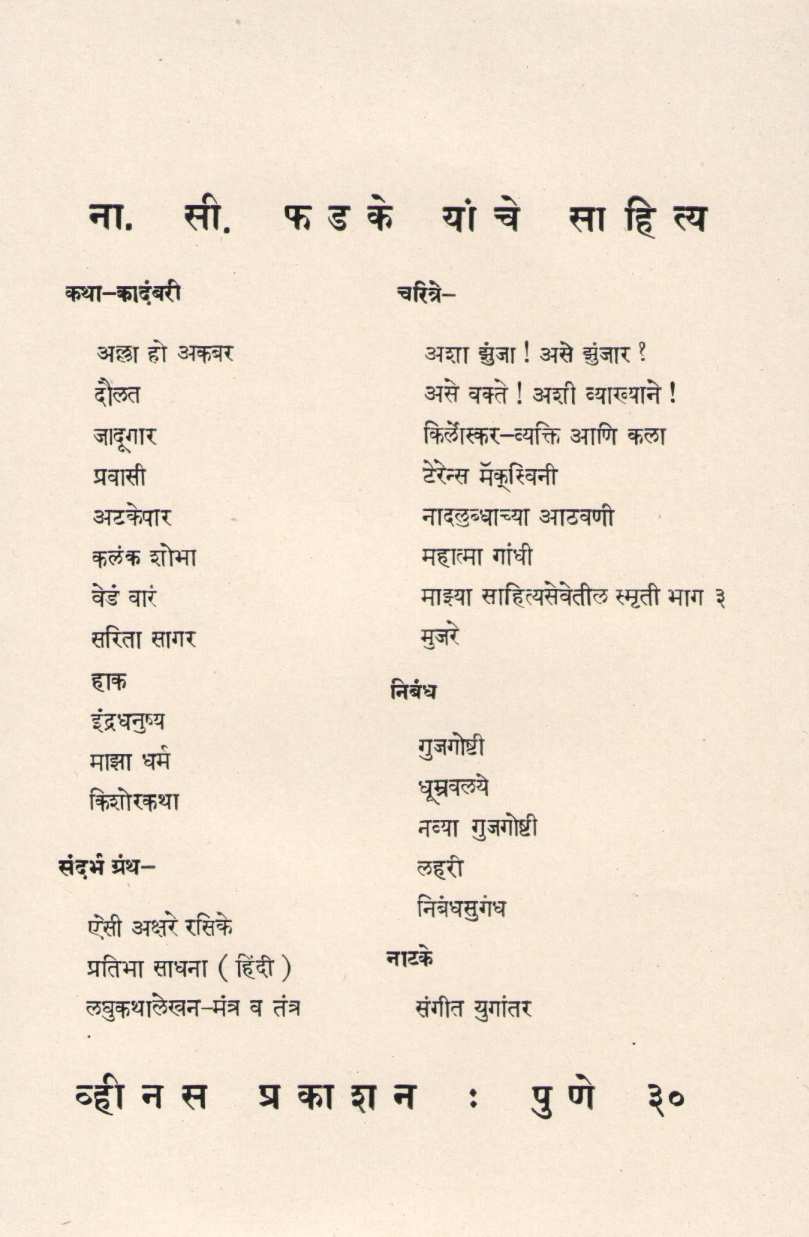 ना. सी. फडके यांचे साहित्य
कथा–कादंबरी
अल्ला हो अकबर
दौलत
जादूगार
प्रवासी
अटकेपार
कलंक शोभा
वेडं वारं
सरिता सागर
हाक
इंद्रधनुष्य
माझा धर्म
किशोरकथा
संदर्भ ग्रंथ–
ऐसी अक्षरे रसिके
प्रतिभा साधना ( हिंदी )
लघुकथालेखन–मंत्र व तंत्र
चरित्रे–
अशा झुंजा ! असे झुंजार ?
असे वक्ते ! अशी व्याख्याने !
किर्लोस्कर–व्यक्ति आणि कला
टेरेन्स मॅक्‌स्विनी
नादलुब्धाच्या आठवणी
महात्मा गांधी
माझ्या साहित्यसेवेतील स्मृती भाग ३
मुजरे
निबंध
गुजगोष्टी
धूम्रवलये
नव्या गुजगोष्टी
लहरी
निबंधसुगंध
नाटके
संगीत युगांतर
व्हीनस प्रकाशन : पुणे ३०